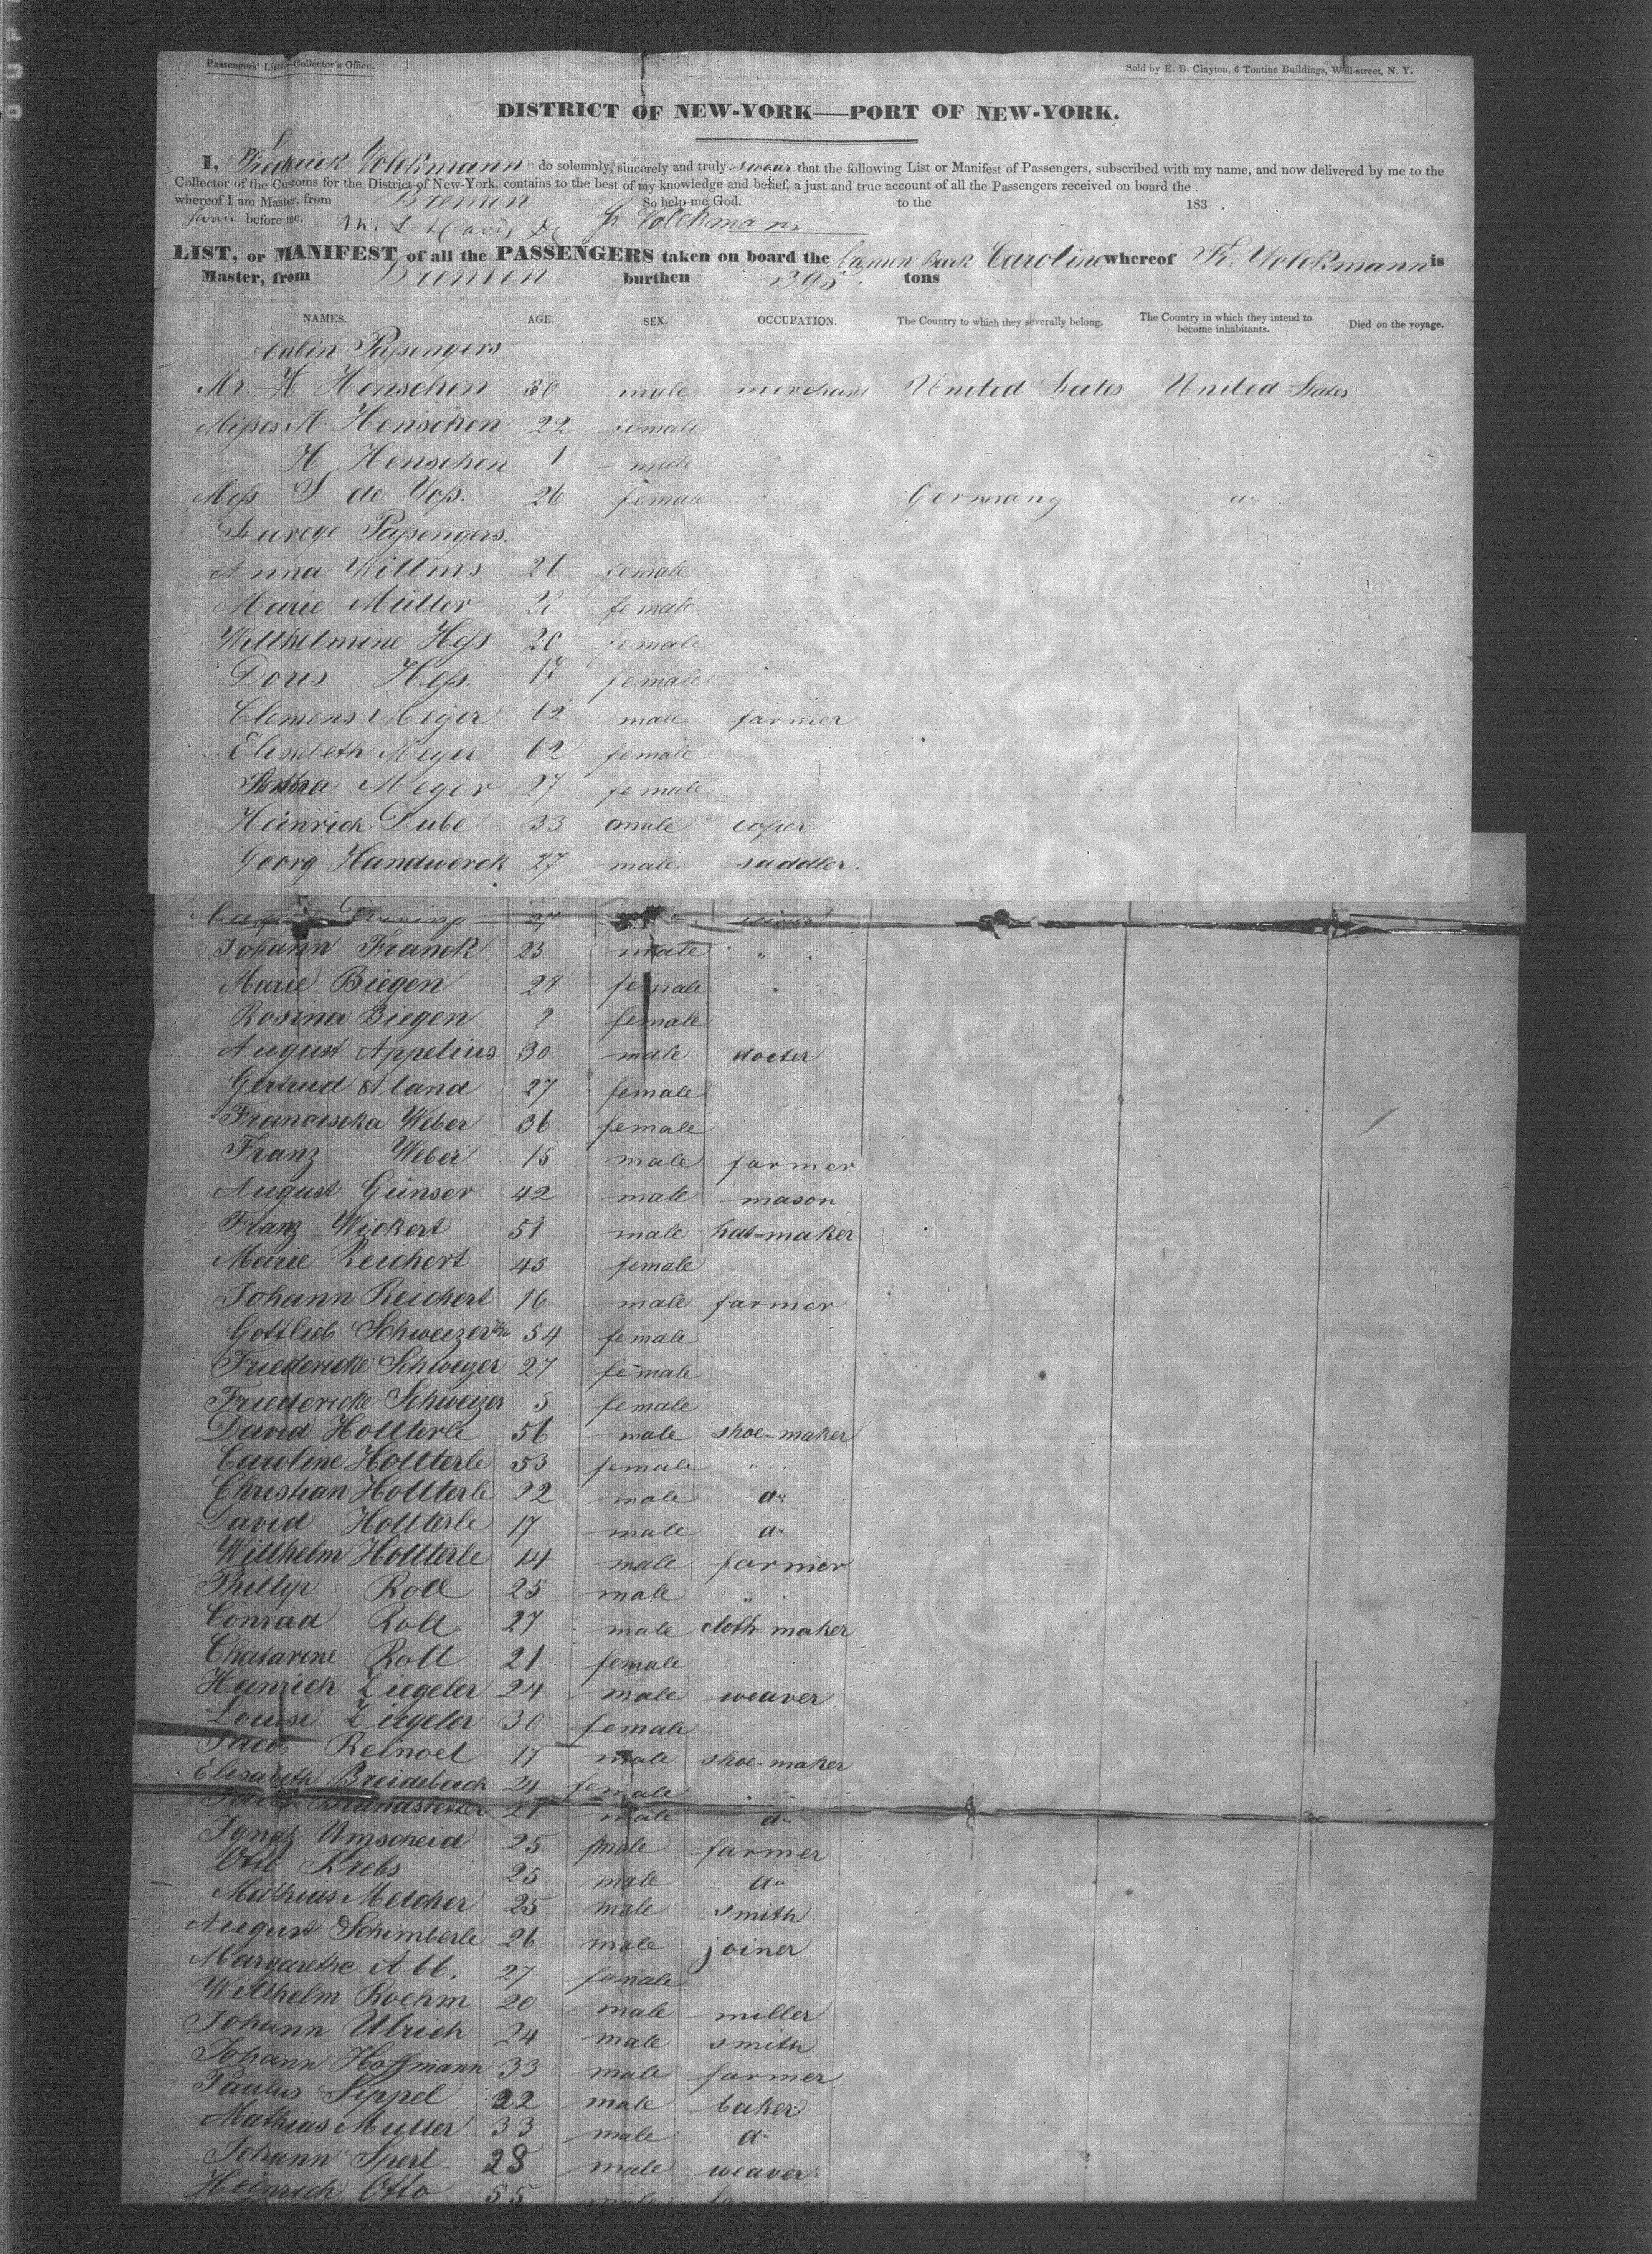 Passengers' List—Collector's Office.
Sold by E. B. Clayton, 6 Tontine Buildings, Wall-street, N. Y.
DISTRICT OF NEW-YORK—PORT OF NEW-YORK.
I, Frederick Volckmann do solemnly, sincerely and truly swear that the following List or Manifest of Passengers, subscribed with my name, and now delivered by me to the
Collector of the Customs for the District of New-York, contains to the best of my knowledge and belief, a just and true account of all the Passengers received on board the
whereof I am Master, from Bremen So help me God. to the 183 .
before me, Fr Volckmann
LIST, or MANIFEST of all the PASSENGERS taken on board the Bremen Bark Caroline whereof Fr. Volckmann is
Master, from Bremen burthen 395 tons
NAMES. AGE. SEX. OCCUPATION. The Country to which they severally belong. The Country in which they intend to become inhabitants. Died on the voyage.
Cabin Passengers
Mr. H Henschen 30 male merchant United States United States
Misses M. Henschen 22 female
H Henschen 1 male
Miss S de Voss. 26 female Germany do
Passengers.
Anna Willms 21 female
Marie Müller female
Willhelmine Hess 20 female
Doris Hess. 17 female
Clemens Meyer 62 male farmer
Elisabeth Meyer 62 female
Meyer 27 female
Heinrich Dube 33 male coper
Georg Handwerck 27 male saddler.
27
Johann Franck 23 male "
Marie Biegen 28 female
Rosina Biegen female
August Appelius 30 male docter
Gertrud Aland 27 female
Franciscka Weber 36 female
Franz Weber 15 male farmer
August Günser 42 male mason
Franz Wickert 51 male hat-maker
Marie Reichert 45 female
Johann Reichert 16 male farmer
Gottlieb Schweizer 54 female
Friedericke Schweizer 27 female
Friedericke Schweizer 5 female
David Hollterle 56 male shoe-maker
Caroline Hollterle 53 female "
Christian Hollterle 22 male do
David Hollterle 17 male do
Willhelm Hollterle 14 male farmer
Phillip Roll 25 male "
Conrad Roll 27 male cloth-maker
Chatarine Roll 21 female
Heinrich Ziegeler 24 male weaver
Louise Ziegeler 30 female
Jacob Reinoel 17 male shoe-maker
Elisabeth Breidebach 24 female
Brandstetter 21 male do
Ignatz Umscheid 25 male farmer
Otto Krebs 25 male do
Mathias Melcher 25 male smith
August Schimberle 26 male joiner
Margarethe Abb. 27 female
Willhelm Roehm 20 male miller
Johann Ulrich 24 male smith
Johann Hoffmann 33 male farmer
Paulus Sippel 22 male baker
Mathias Muller 33 male do
Johann Sperl. 28 male weaver.
Heinrich Otto 55 male